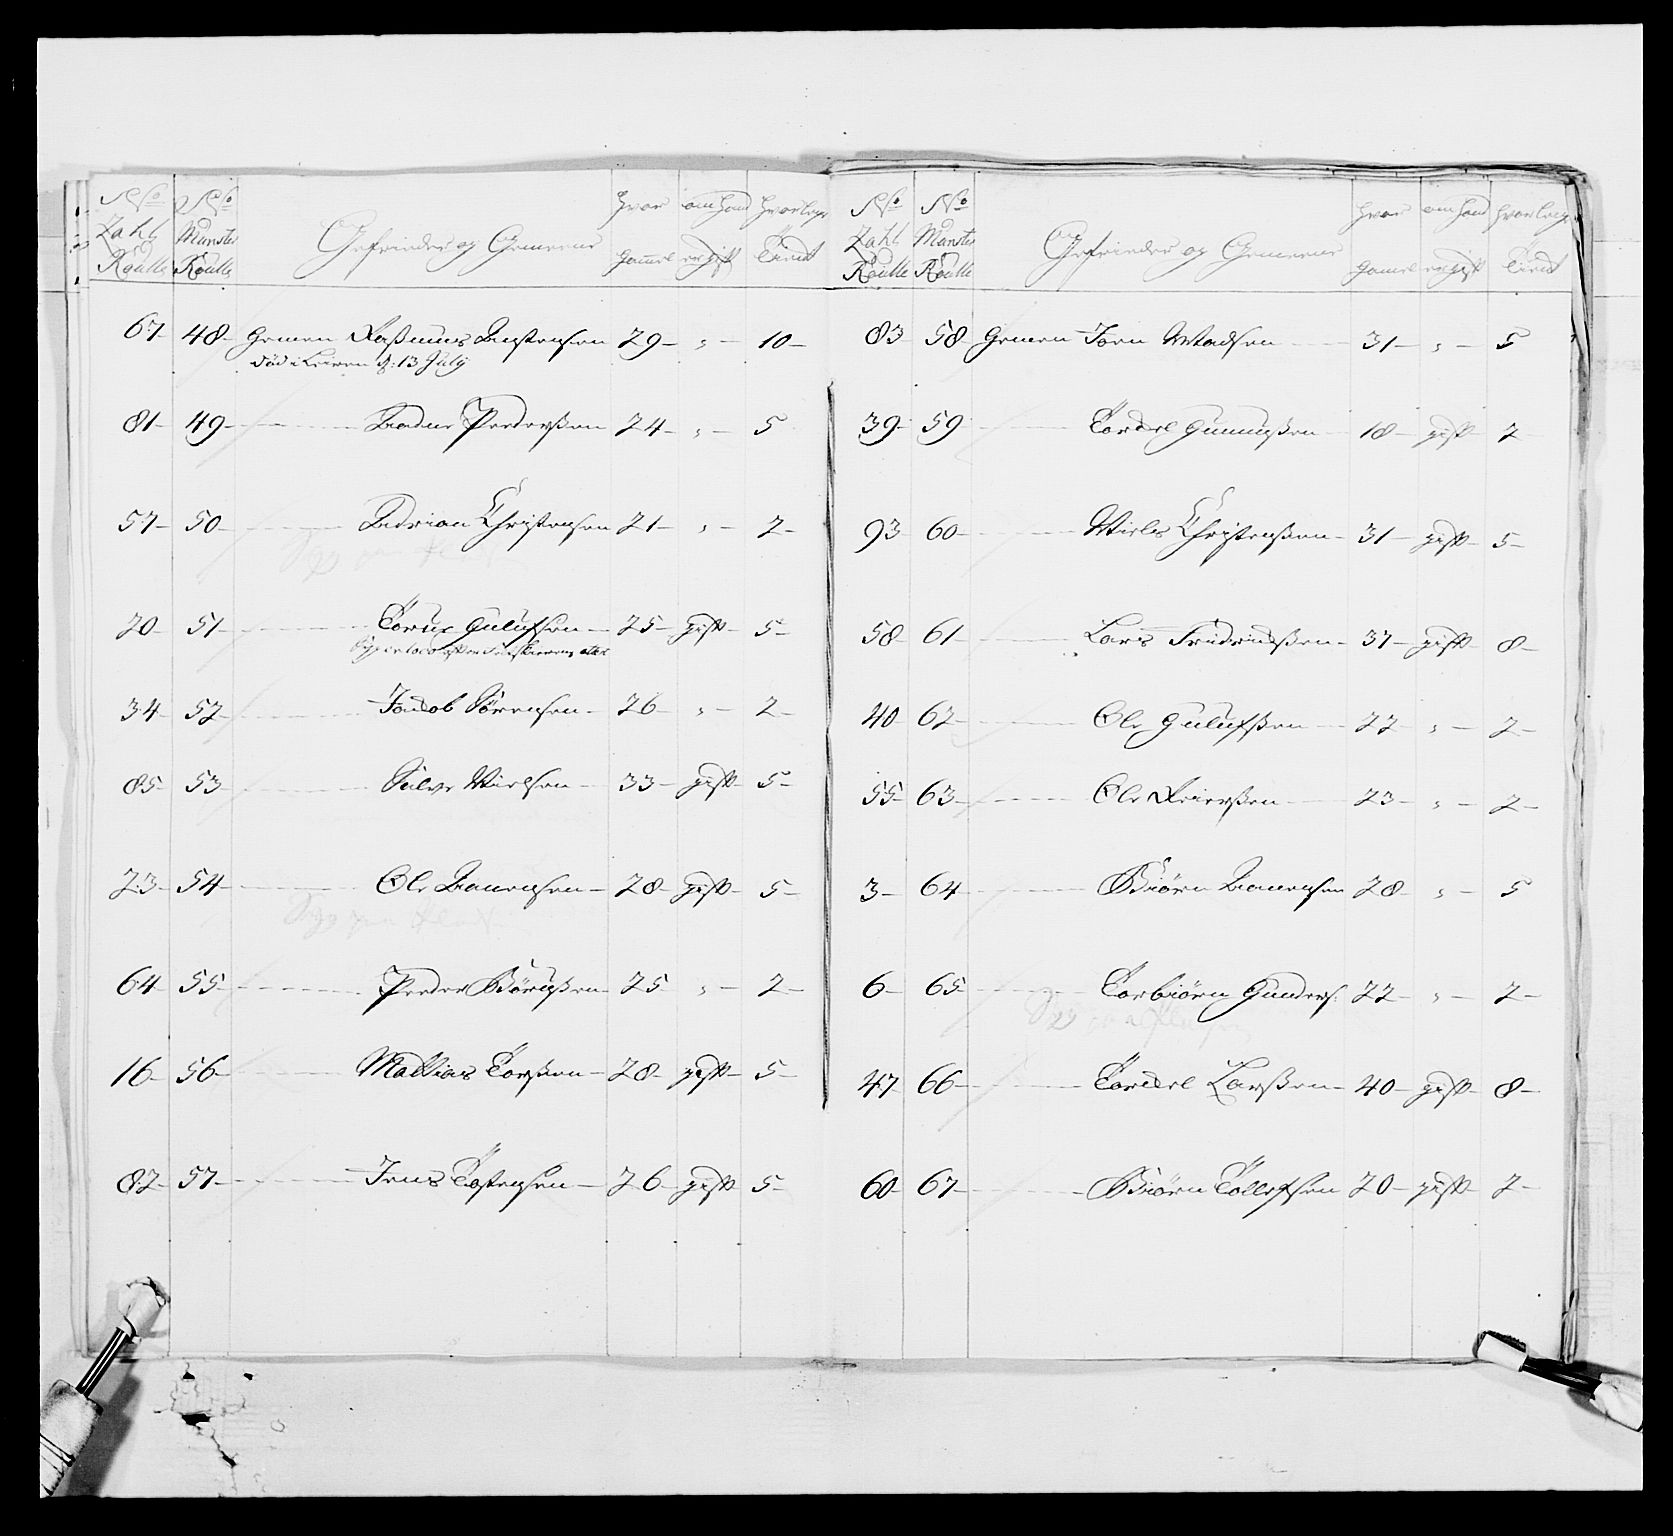 No Zahl Roulle | No Mønster Roulle | Gefrieder og Gemeene | hvor gamel | om hand er gift | hvor lenge tient
67 - 48 - Gemen Rasmus - 29 - " - 10 -
død i Leiren d: 13 July
81 - 49 - Peders̈en 24 - " - 5
57 - 50 - Adrian Christensen 21 - " - 2 -
20 - 51 - Gulufsen - 25 - gift - 5 -
34 - 52 - Jacob Sørensen - 26 - " - 2 -
85 - 53 - Salve Nielsen - 33 - gift - 5 -
23 - 54 - Ole Aanensen - 28 - gift - 5 -
64 - 55 - Peder - 25 - " - 2 -
16 - 56 - Mathias Torßen - 28 - gift - 5 -
82 - 57 - Jens Tostensen - 26 - gift - 5 -
No Zahl Roulle | No Mønster Roulle | Gefrieder og Gemeene | hvor gamel | om hand er gift | hvor lenge tient
83 58 Gemen Jörn Madsen 31 - " - 5
39 - 59 Tordel Gunnußen - 18 - gift - 2
93 60 - Niels Christenßen - 31 - gift - 5 -
58 - 61 Lars Fridrichßen - 37 - gift - 8 -
40 62 - Ole Gulufßen 22 - " - 2 -
55 - 63 - Ole Reierßen 23 - " - 2 -
3 - 64 Biörn Aanensen 28 - " - 5
6 - 65 Torbiörn Gunders: 22 - " - 2 -
47 66 - Tordel Larßen - 40 - gift - 8 -
60 - 67 - Biörn Tollefsen 20 - gift - 2 -